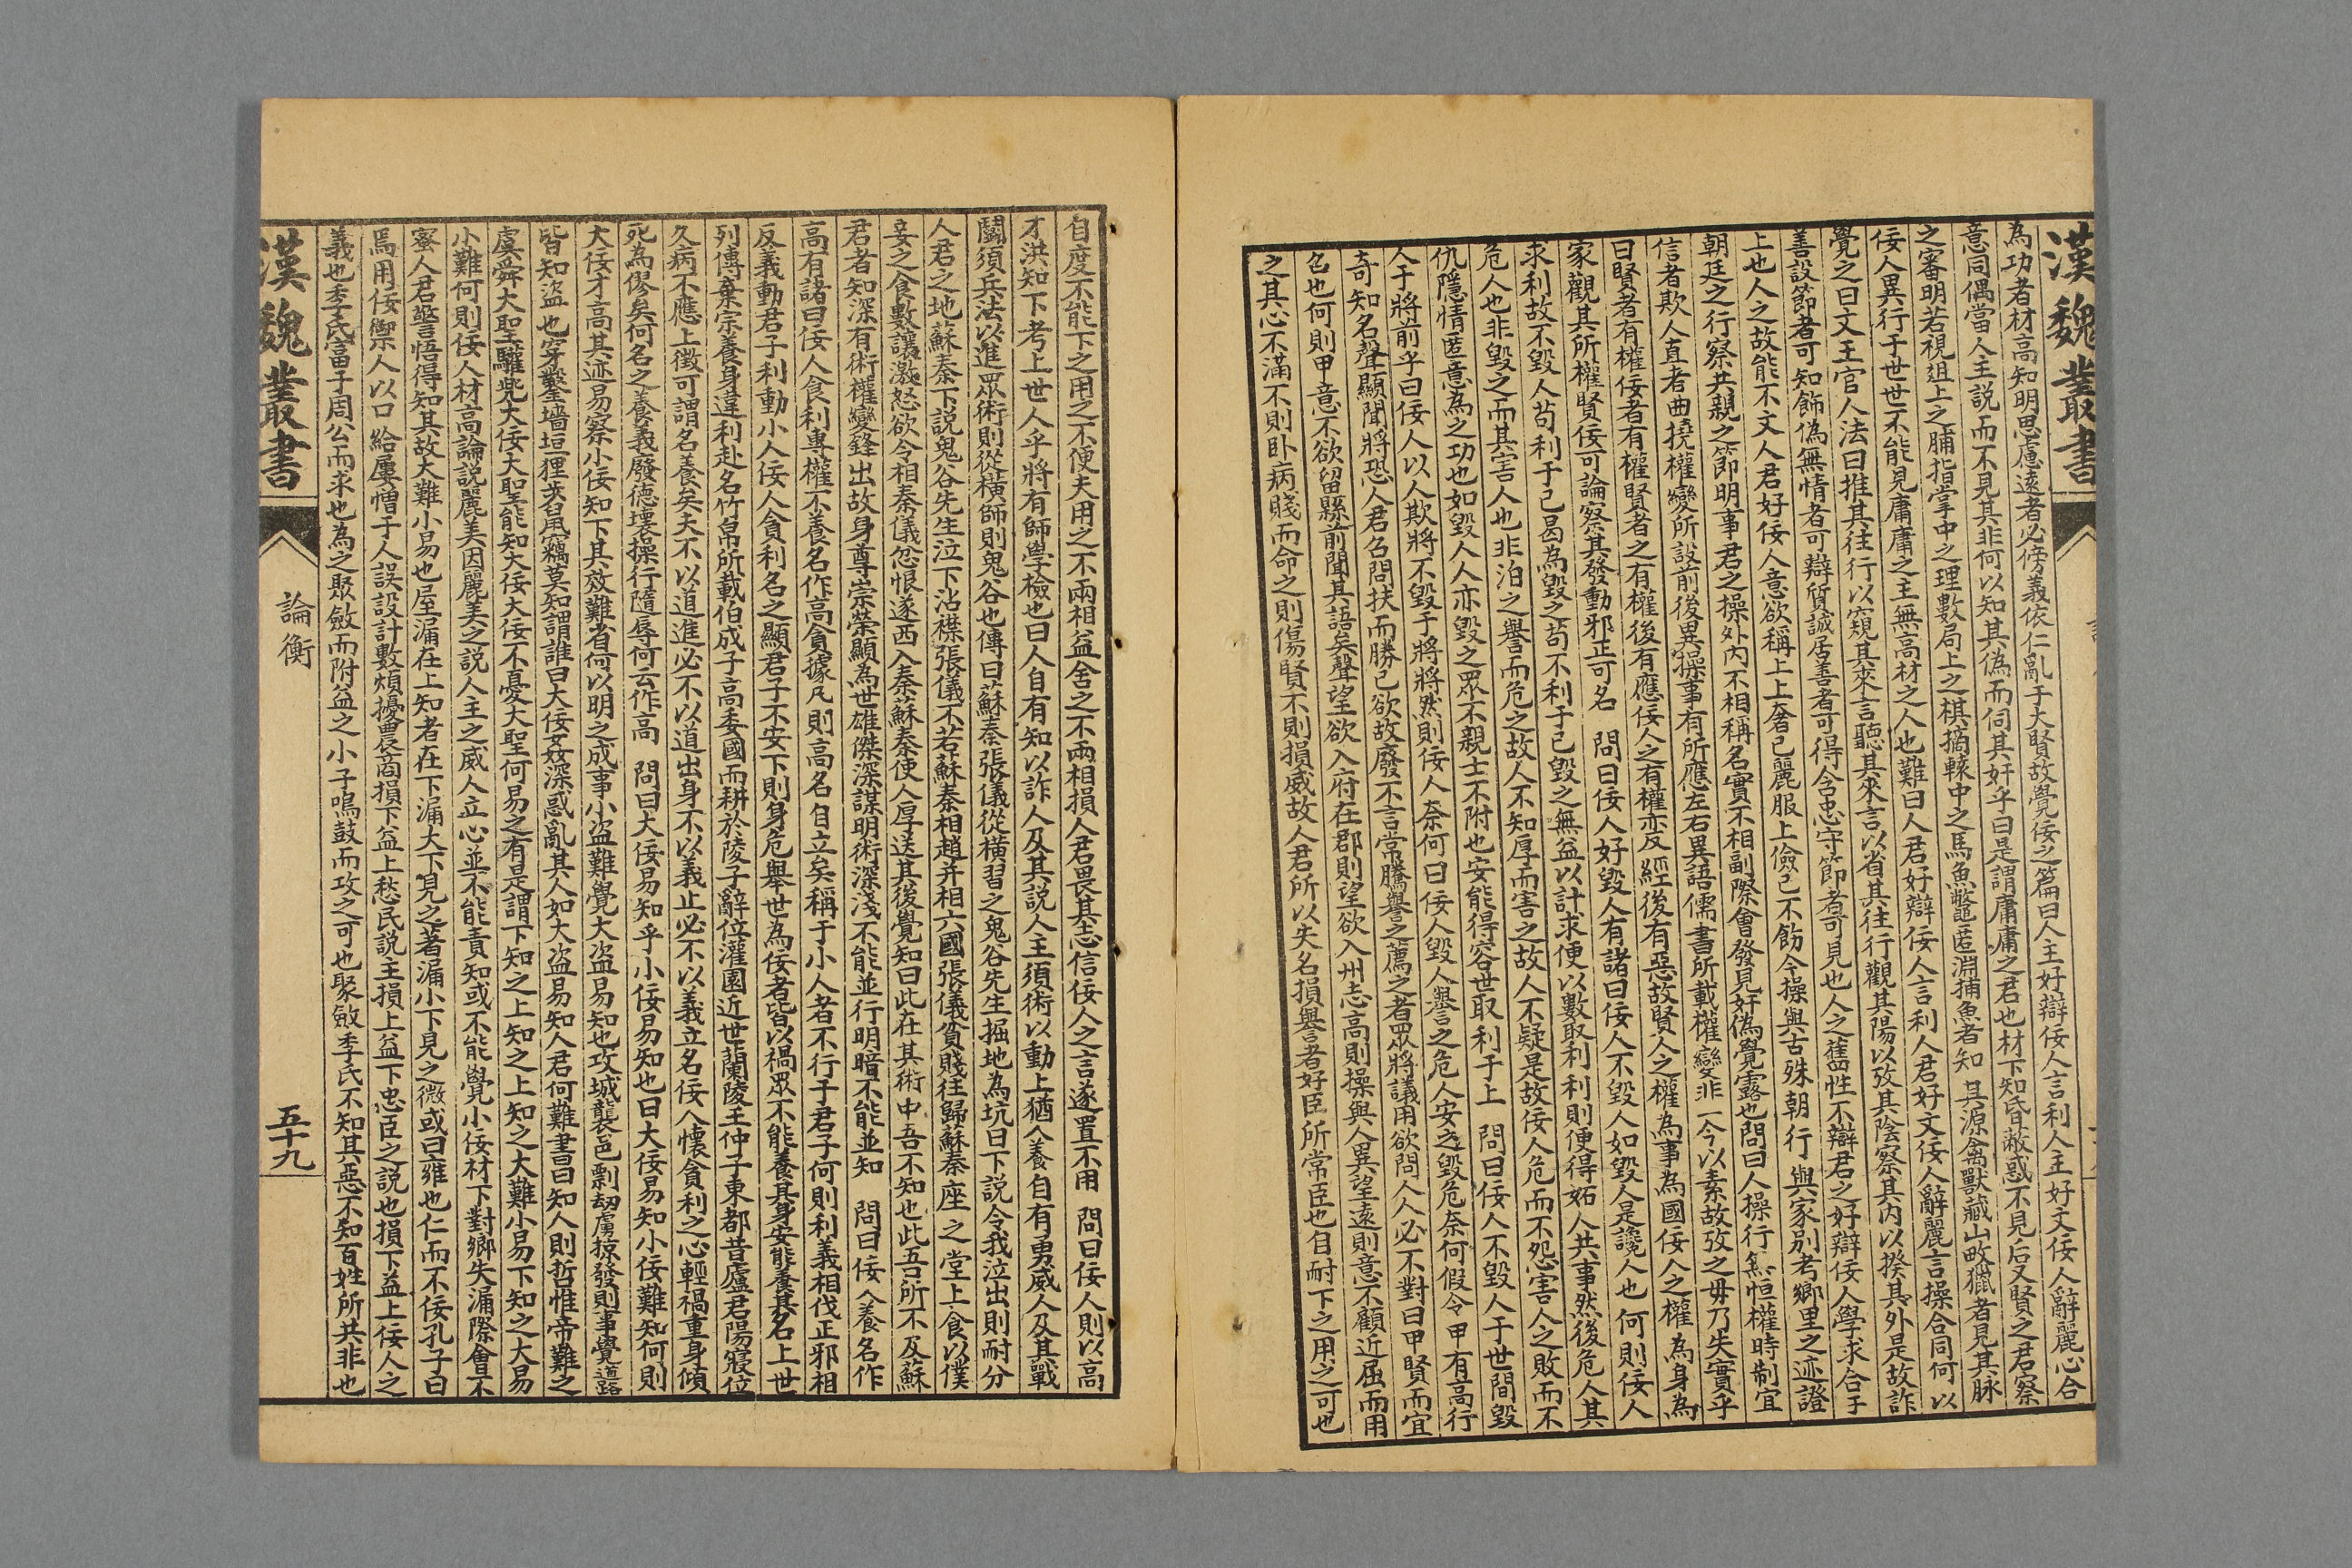 漢魏叢書
為功者材高知明思慮遠者必傍義依仁亂于大賢故覺佞之篇曰人主好辯佞人言利人主好文佞人辭麗心合
意同偶當人主說而不見其非何以知其偽而伺其奸乎曰是謂庸庸之君也材下知昏蔽惑不見后又賢之君察
之審明若視俎上之脯指掌中之理數局上之棋摘轅中之馬魚鱉匿淵捕魚者知其源禽獸藏山畋獵者見其脉
佞人異行于世世不能見庸庸之主無高材之人也難曰人君好辯佞人言利人君好文佞人辭麗言操合同何以
覺之曰文王官人法曰推其往行以窺其來言聽其來言以省其往行觀其陽以攷其陰察其內以揆其外是故詐
善設節者可知飾偽無情者可辯質誠居善者可得含忠守節者可見也人之舊性不辯君之好辯佞人學求合于
上也人之故能不文人君好佞人意欲稱上上奢己麗服上儉己不飭今操與古殊朝行與家別考鄉里之迹證
朝廷之行察共親之節明事君之操外內不相稱名實不相副際會發見奸偽覺露也問曰人操行無恒權時制宜
信者欺人直者曲撓權變所設前後異操事有所應左右異語儒書所載權變非一今以素故攷之毋乃失實乎
曰賢者有權佞者有權賢者之有權後有應佞人之有權亦反經後有惡故賢人之權為事為國佞人之權為身為
家觀其所權賢佞可論察其發動邪正可名　問曰佞人好毀人有諸曰佞人不毀人如毀人是讒人也何則佞人
求利故不毀人苟利于己曷為毀之苟不利于己毀之無益以計求便以數取利利則便得妬人共事然後危人其
危人也非毀之而其害人也非泊之譽而危之故人不知厚而害之故人不疑是故佞人危而不怨害人之敗而不
仇隱情匿意為之功也如毀人人亦毀之眾不親士不附也安能得容世取利于上　問曰佞人不毀人于世間毀
人于將前乎曰佞人以人欺將不毀于將將然則佞人奈何曰佞人毀人譽之危人安之毀危奈何假令甲有高行
奇知名聲顯聞將恐人君召問扶而勝己欲故廢不言常騰譽之薦之者眾將議用欲問人人必不對曰甲賢而宜
召也何則甲意不欲留縣前聞其語矣聲望欲入府在郡則望欲入州志高則操與人異望遠則意不顧近屈而用
之其心不滿不則臥病賤而命之則傷賢不則損威故人君所以失名損譽者好臣所常臣也自耐下之用之可也
自度不能下之用之不便夫用之不兩相益舍之不兩相損人君畏其志信佞人之言遂置不用　問曰佞人則以高
才洪知下考上世人乎將有師學檢也曰人自有知以詐人及其說人主須術以動上猶人養自有勇威人及其戰
鬬須兵法以進眾術則從橫師則鬼谷也傳曰蘇秦張儀從橫習之鬼谷先生掘地為坑曰下說令我泣出則耐分
人君之地蘇秦下說鬼谷先生泣下沾襟張儀不若蘇秦相趙并相六國張儀貧賤往歸蘇秦座之堂上食以僕
妾之食數讓激怒欲令相秦儀忿恨遂西入秦蘇秦使人厚送其後覺知曰此在其術中吾不知也此吾所不及蘇
君者知深有術權變鋒出故身尊崇榮顯為世雄傑深謀明術深淺不能並行明暗不能並知　問曰佞人養名作
高有諸曰佞人食利專權不養名作高貪據凡則高名自立矣稱于小人者不行于君子何則利義相伐正邪相
反義動君子利動小人佞人貪利名之顯君子不安下則身危舉世為佞者皆以禍眾不能養其身安能養其名上世
列傳棄宗養身違利赴名竹帛所載伯成子高委國而耕於陵子辭位灌園近世蘭陵王仲子東都昔廬君陽寢位
久病不應上徵可謂名養矣夫不以道進必不以道出身不以義止必不以義立名佞人懷貪利之心輕禍重身傾
死為僇矣何名之養義廢德壞操行隨辱何云作高　問曰大佞易知乎小佞易知也曰大佞易知小佞難知何則
大佞才高其迹易察小佞知下其效難省何以明之成事小盜難覺大盜易知也攻城襲邑剽刼虜掠發則事覺道路
皆知盜也穿鑿墻垣狸步鼠竊莫知謂誰曰大佞姦深惑亂其人如大盜易知人君何難書曰知人則哲惟帝難之
虞舜大聖驩兜大佞大聖能知大佞大佞不憂大聖何易之有是謂下知之上知之上知之大難小易下知之大易
小難何則佞人材高論說麗美因麗美之說人主之威人立心並不能責知或不能覺小佞材下對鄉失漏際會不
密人君警悟得知其故大難小易也屋漏在上知者在下漏大下見之著漏小下見之微或曰雍也仁而不佞孔子曰
焉用佞禦人以口給屢憎于人誤設計數煩擾農商損下益上愁民說主損上益下忠臣之說也損下益上佞人之
義也季氏富于周公而求也為之聚斂而附益之小子鳴鼓而攻之可也聚斂季氏不知其惡不知百姓所共非也
漢魏叢書
論衡
五十九